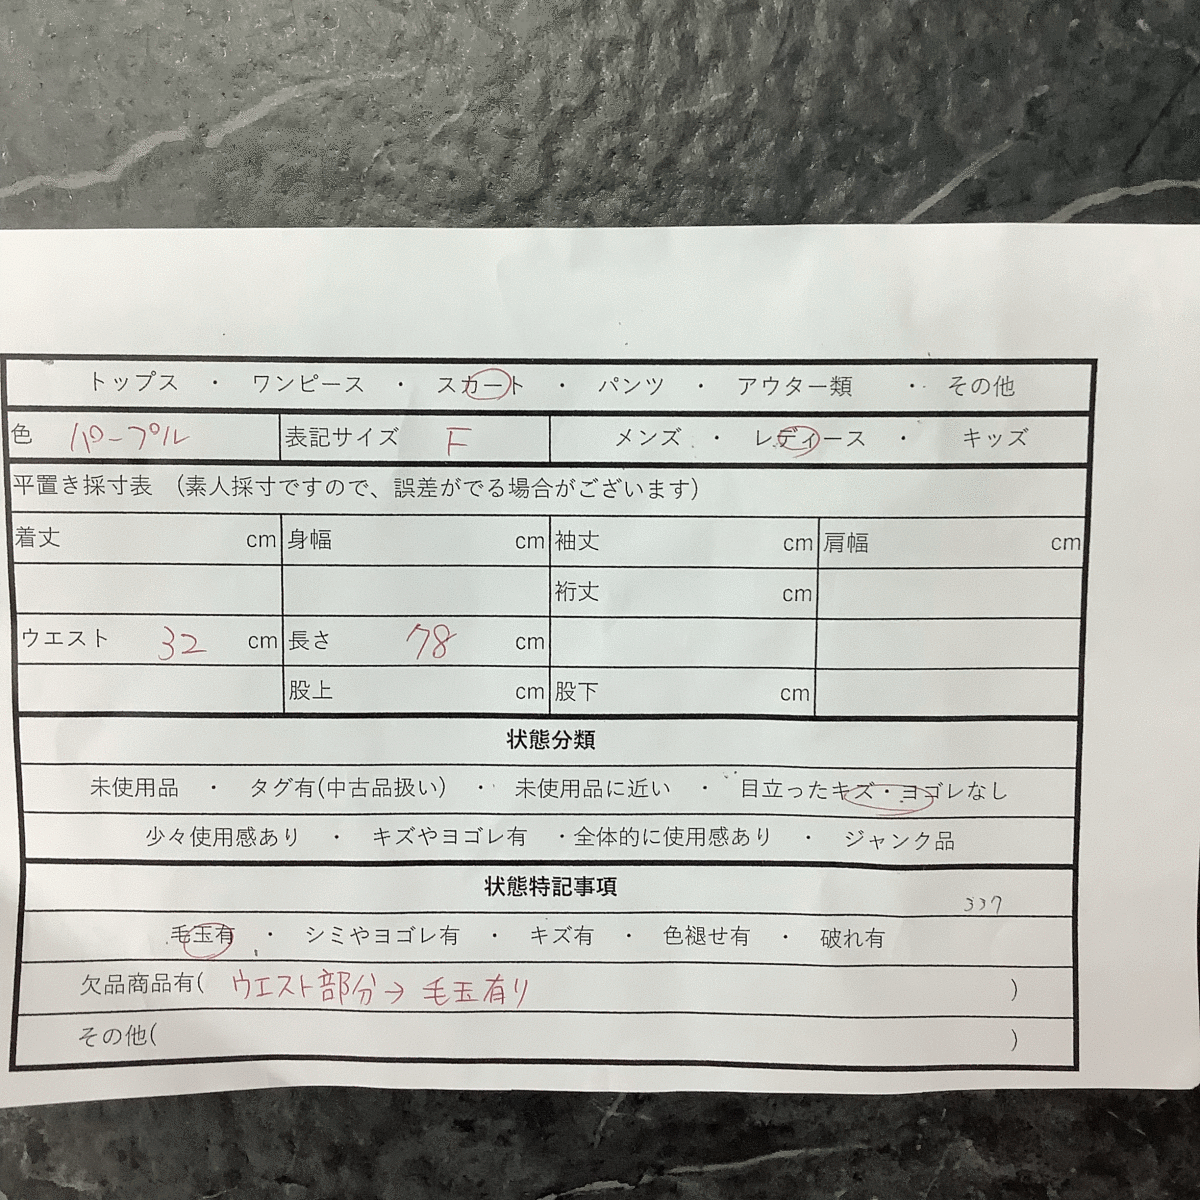 トップス ・ ワンピース ・ スカート ・ パンツ ・ アウター類 ・ その他
色 パープル 表記サイズ F メンズ ・ レディース ・ キッズ
平置き採寸表 （素人採寸ですので、誤差がでる場合がございます）
着丈 cm 身幅 cm 袖丈 cm 肩幅 cm
裄丈 cm
ウエスト 32 cm 長さ 78 cm
股上 cm 股下 cm
状態分類
未使用品 ・ タグ有(中古品扱い) ・ 未使用品に近い ・ 目立ったキズ・ヨゴレなし
少々使用感あり ・ キズやヨゴレ有 ・全体的に使用感あり ・ ジャンク品
状態特記事項
337
毛玉有 ・ シミやヨゴレ有 ・ キズ有 ・ 色褪せ有 ・ 破れ有
欠品商品有( ウエスト部分→ 毛玉有り )
その他( )